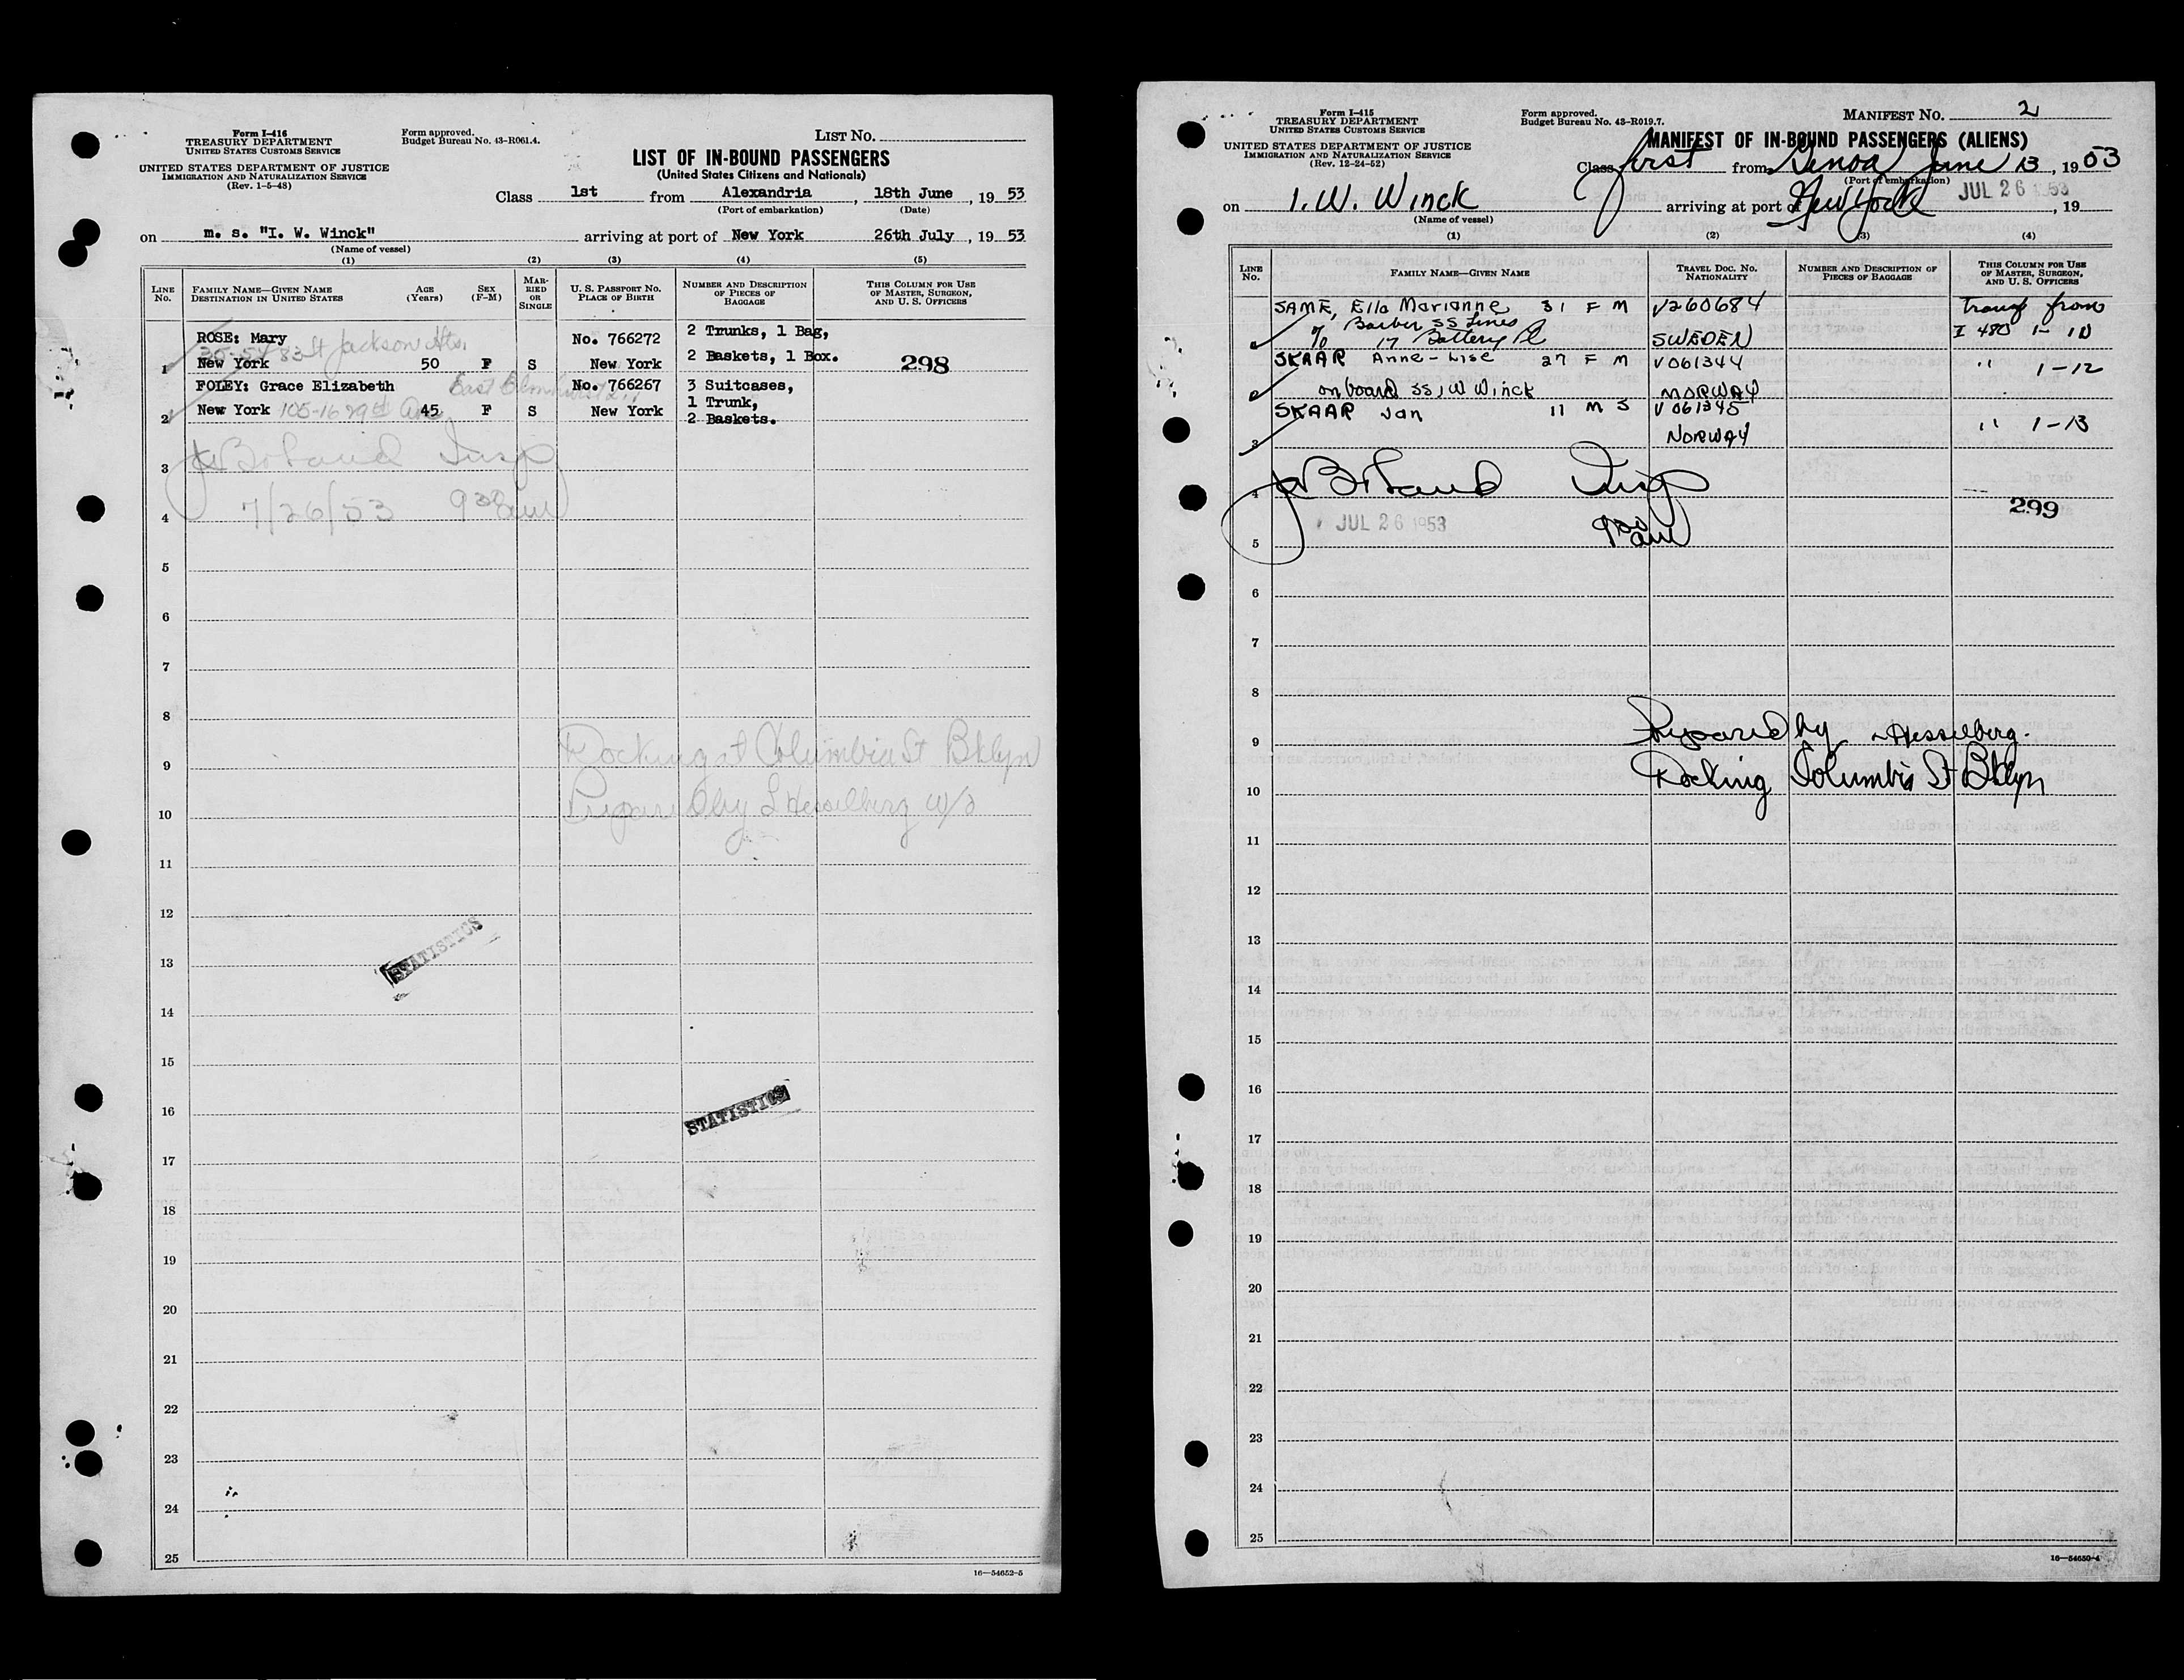 Form I-416
TREASURY DEPARTMENT
UNITED STATES CUSTOMS SERVICE
UNITED STATES DEPARTMENT OF JUSTICE
IMMIGRATION AND NATURALIZATION SERVICE
(Rev. 1-5-48)
Form approved.
Budget Bureau No. 43-R061.4.
LIST No.
LIST OF IN-BOUND PASSENGERS
(United States Citizens and Nationals)
Class 1st from Alexandria, 18th June, 19 53
(Port of embarkation) (Date)
on m. s. "I. W. Winck" arriving at port of New York 26th July, 19 53
(Name of vessel)
(1) (2) (3) (4) (5)
LINE No.
FAMILY NAME—GIVEN NAME
DESTINATION IN UNITED STATES
AGE (Years)
SEX (F-M)
MARRIED OR SINGLE
U. S. PASSPORT NO.
PLACE OF BIRTH
NUMBER AND DESCRIPTION OF PIECES OF BAGGAGE
THIS COLUMN FOR USE OF MASTER, SURGEON, AND U. S. OFFICERS
ROSE: Mary No. 766272 2 Trunks, 1 Bag,
35-54 83 St Jackson Hts.
1 New York 50 F S New York 2 Baskets, 1 Box. 298
FOLEY: Grace Elizabeth No. 766267 3 Suitcases,
East Elmhurst
2 New York 105-16 29th Ave 45 F S New York 1 Trunk,
2 Baskets.
3 Boland Insp
4 7/26/53 9 30 am
5
6
7
8
9 Docking at Columbia St Bklyn
10 Prepared by L Hesselberg
11
12
13 STATISTICS
14
15
16 STATISTICS
17
18
19
20
21
22
23
24
25
16—54652-5
Form I-415
TREASURY DEPARTMENT
UNITED STATES CUSTOMS SERVICE
UNITED STATES DEPARTMENT OF JUSTICE
IMMIGRATION AND NATURALIZATION SERVICE
(Rev. 12-24-52)
Form approved.
Budget Bureau No. 43-R019.7.
MANIFEST No. 2
MANIFEST OF IN-BOUND PASSENGERS (ALIENS)
Class first from Genoa June 13, 19 53
(Port of embarkation)
JUL 26 1953
on I. W. Winck arriving at port of New York, 19
(Name of vessel)
(1) (2) (3) (4)
LINE No.
FAMILY NAME—GIVEN NAME
TRAVEL DOC. NO.
NATIONALITY
NUMBER AND DESCRIPTION OF PIECES OF BAGGAGE
THIS COLUMN FOR USE OF MASTER, SURGEON, AND U. S. OFFICERS
SAME, Ella Marianne 31 F M V260684 transf from
% Barber SS Lines I 480 1-10
17 Battery Pl SWEDEN
SKAAR Anne-Lise 27 F M V061344 " 1-12
2 on board SS I W Winck NORWAY
SKAAR Jan 11 M S V061345 " 1-13
3 NORWAY
4 Boland Insp 299
JUL 26 1953
5 9 30 am
6
7
8
9 Prepared by Hesselberg.
10 Docking Columbia St Bklyn
11
12
13
14
15
16
17
18
19
20
21
22
23
24
25
16—54650-4